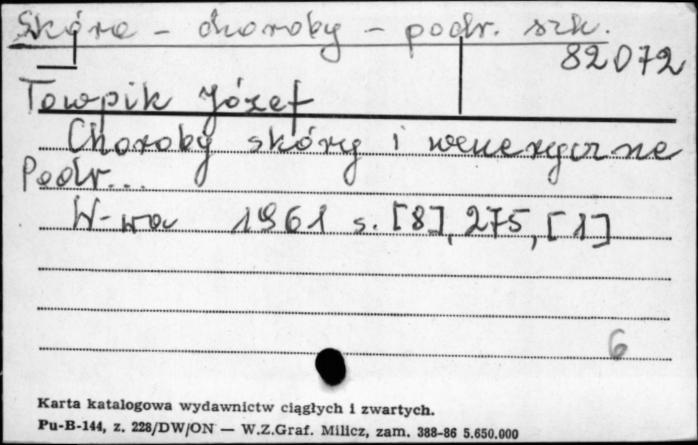 Skóra - choroby - podr. szk.
82072
Towpik Józef
Choroby skóry i weneryczne
Podr...
W-wa 1961 s. [8], 275, [1]
6
Karta katalogowa wydawnictw ciągłych i zwartych.
Pu-B-144, z. 228/DW/ON — W.Z.Graf. Milicz, zam. 388-86 5.650.000